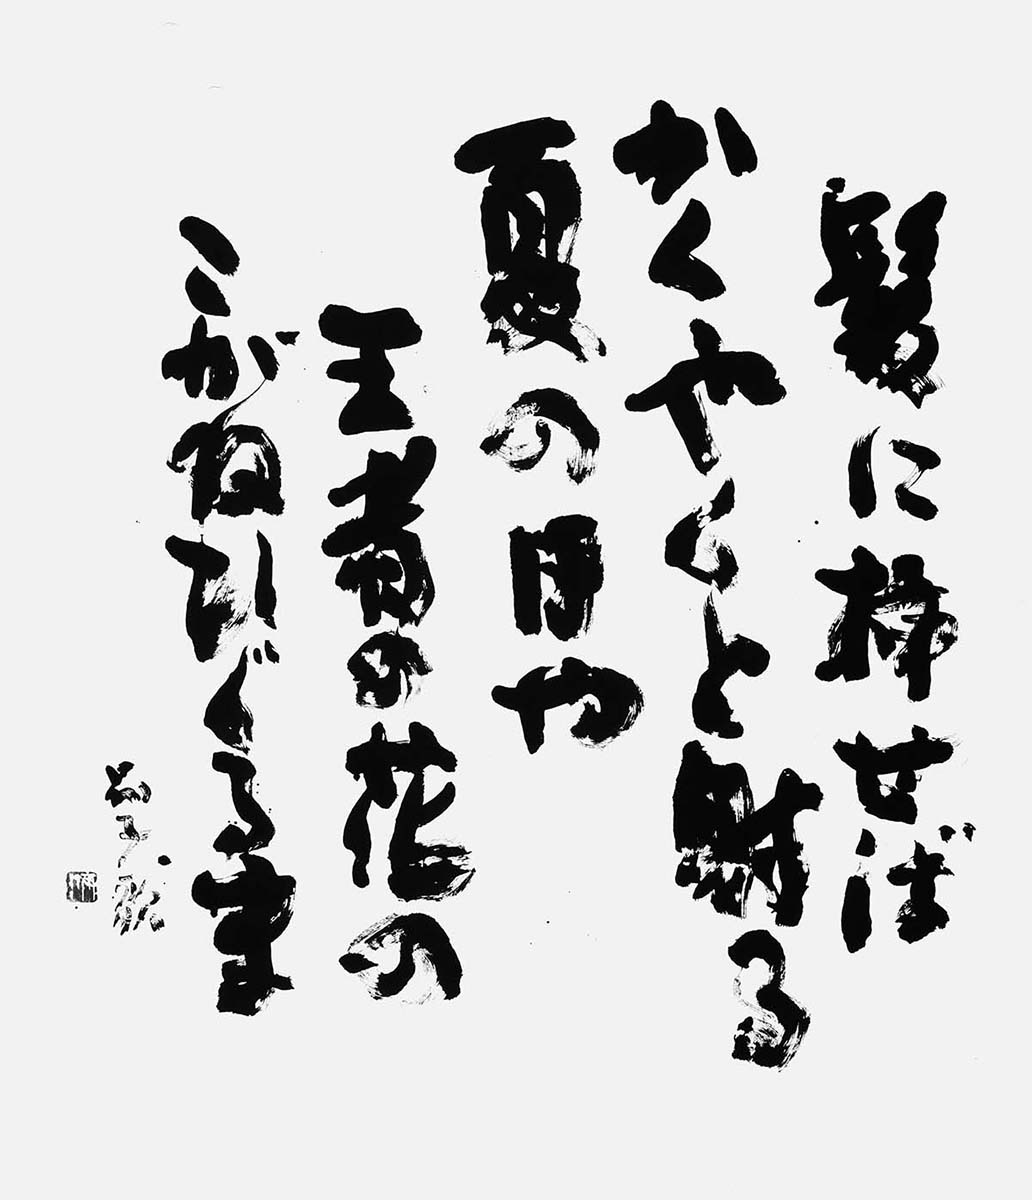 髪に挿せば
かくやくと射る
夏の日や
王者の花の
こがねひぐるま
晶子歌